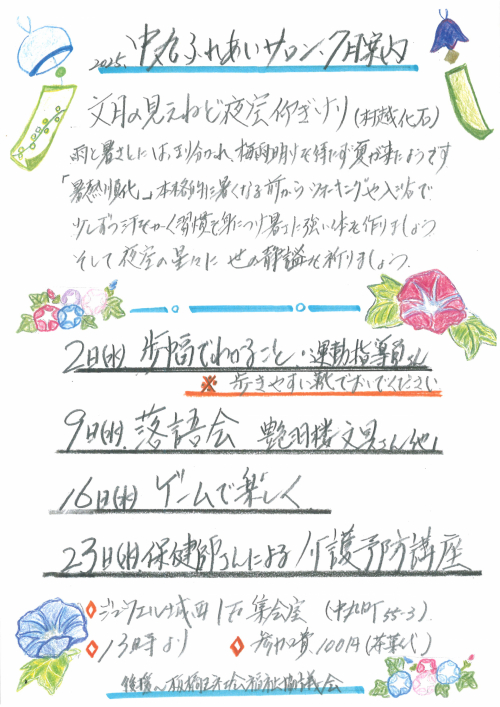 2025. 中丸ふれあいサロン 7月案内
文月の見えねど夜空仰ぎけり (村越化石)
雨と暑さにはっきり分かれ、梅雨明けを待たず夏が来たようです
「暑熱順化」本格的に暑くなる前からウォーキングや入浴で
少しずつ汗をかく習慣を身につけ暑さに強い体を作りましょう
そして夜空の星々に 世の静謐を祈りましょう.
2日(水) 歩幅でわかること・運動指導員さん
※ 歩きやすい靴でおいでください
9日(水) 落語会 艶羽楼 文晃さん他1
16日(水) ゲームで楽しく
23日(水) 保健師さんによる 介護予防講座
◇ジュウェル城西1F集会室 (中丸町55-3)
◇13時より ◇参加費100円(茶菓代)
後援〜板橋区社会福祉協議会